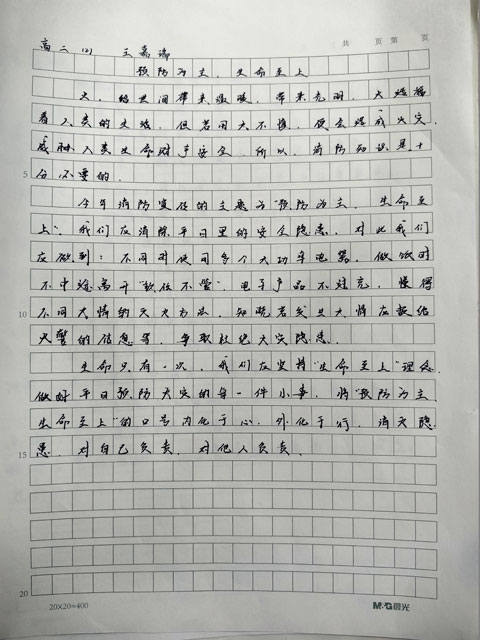 高二(2) 王嘉瑞
共 页 第 页
预防为主，生命至上
火，给世间带来温暖，带来光明，火燃播
着人类的文明，但若用火不慎，便会造成火灾，
威胁人类生命财产安全，所以，消防知识是十
5 分必要的。
今年消防宣传的主题为"预防为主，生命至
上"。我们应消除平日里的安全隐患，对此我们
应做到：不同时使用多个大功率电器，做饭时
不中途离开"软放不管"，电子产品不過充，懂得
10 不同火情的灭火方法，知晓若发生火情应报给
火警的信息等，争取杜绝火灾隐患。
生命只有一次，我们应坚持"生命至上"理念，
做好平日预防火灾的每一件小事，将"预防为主，
生命至上"的口号内化于心，外化于行，消灭隐
15 患，对自己负责，对他人负责。
20
20×20=400 M&G晨光